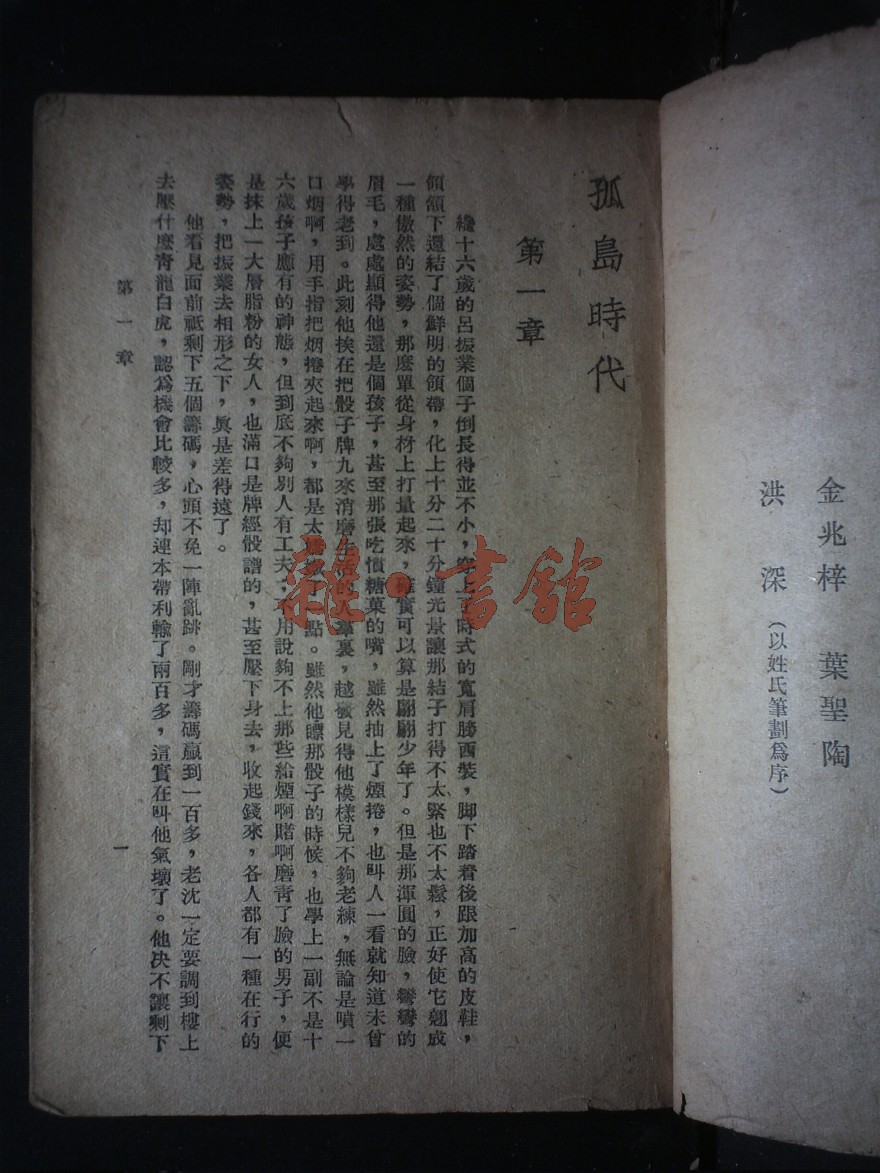 金兆梓　葉聖陶
洪　深（以姓氏筆劃為序）
孤島時代
第一章
纔十六歲的呂振業個子倒長得並不小，穿上了時式的寬肩膀西裝，脚下踏着後跟加高的皮鞋，
領頷下還結了個鮮明的領帶，化上十分二十分鐘光景讓那結子打得不太緊也不太鬆，正好使它翹成
一種傲然的姿勢，那麽單從身材上打量起來，確實可以算是翩翩少年了。但是那渾圓的臉，彎彎的
眉毛，處處顯得他還是個孩子，甚至那張吃慣糖菓的嘴，雖然抽上了煙捲，也叫人一看就知道未曾
學得老到。此刻他挨在把骰子牌九來消磨生活的人羣裏，越發見得他模樣兒不夠老練，無論是噴一
口烟啊，用手指把烟捲夾起來啊，都是太嫩了一點。雖然他瞟那骰子的時候，也學上一副不是十
六歲孩子應有的神態，但到底不夠別人有工夫；不用說夠不上那些給煙啊賭啊磨青了臉的男子，便
是抹上一大層脂粉的女人，也滿口是牌經骰譜的，甚至壓下身去，收起錢來，各人都有一種在行的
姿勢，把振業去相形之下，眞是差得遠了。
他看見面前祗剩下五個籌碼，心頭不免一陣亂跳。剛才籌碼贏到一百多，老沈一定要調到樓上
去壓什麽青龍白虎，認爲機會比較多，却連本帶利輸了兩百多，這實在叫他氣壞了。他決不讓剩下
第一章
一
雜·書館